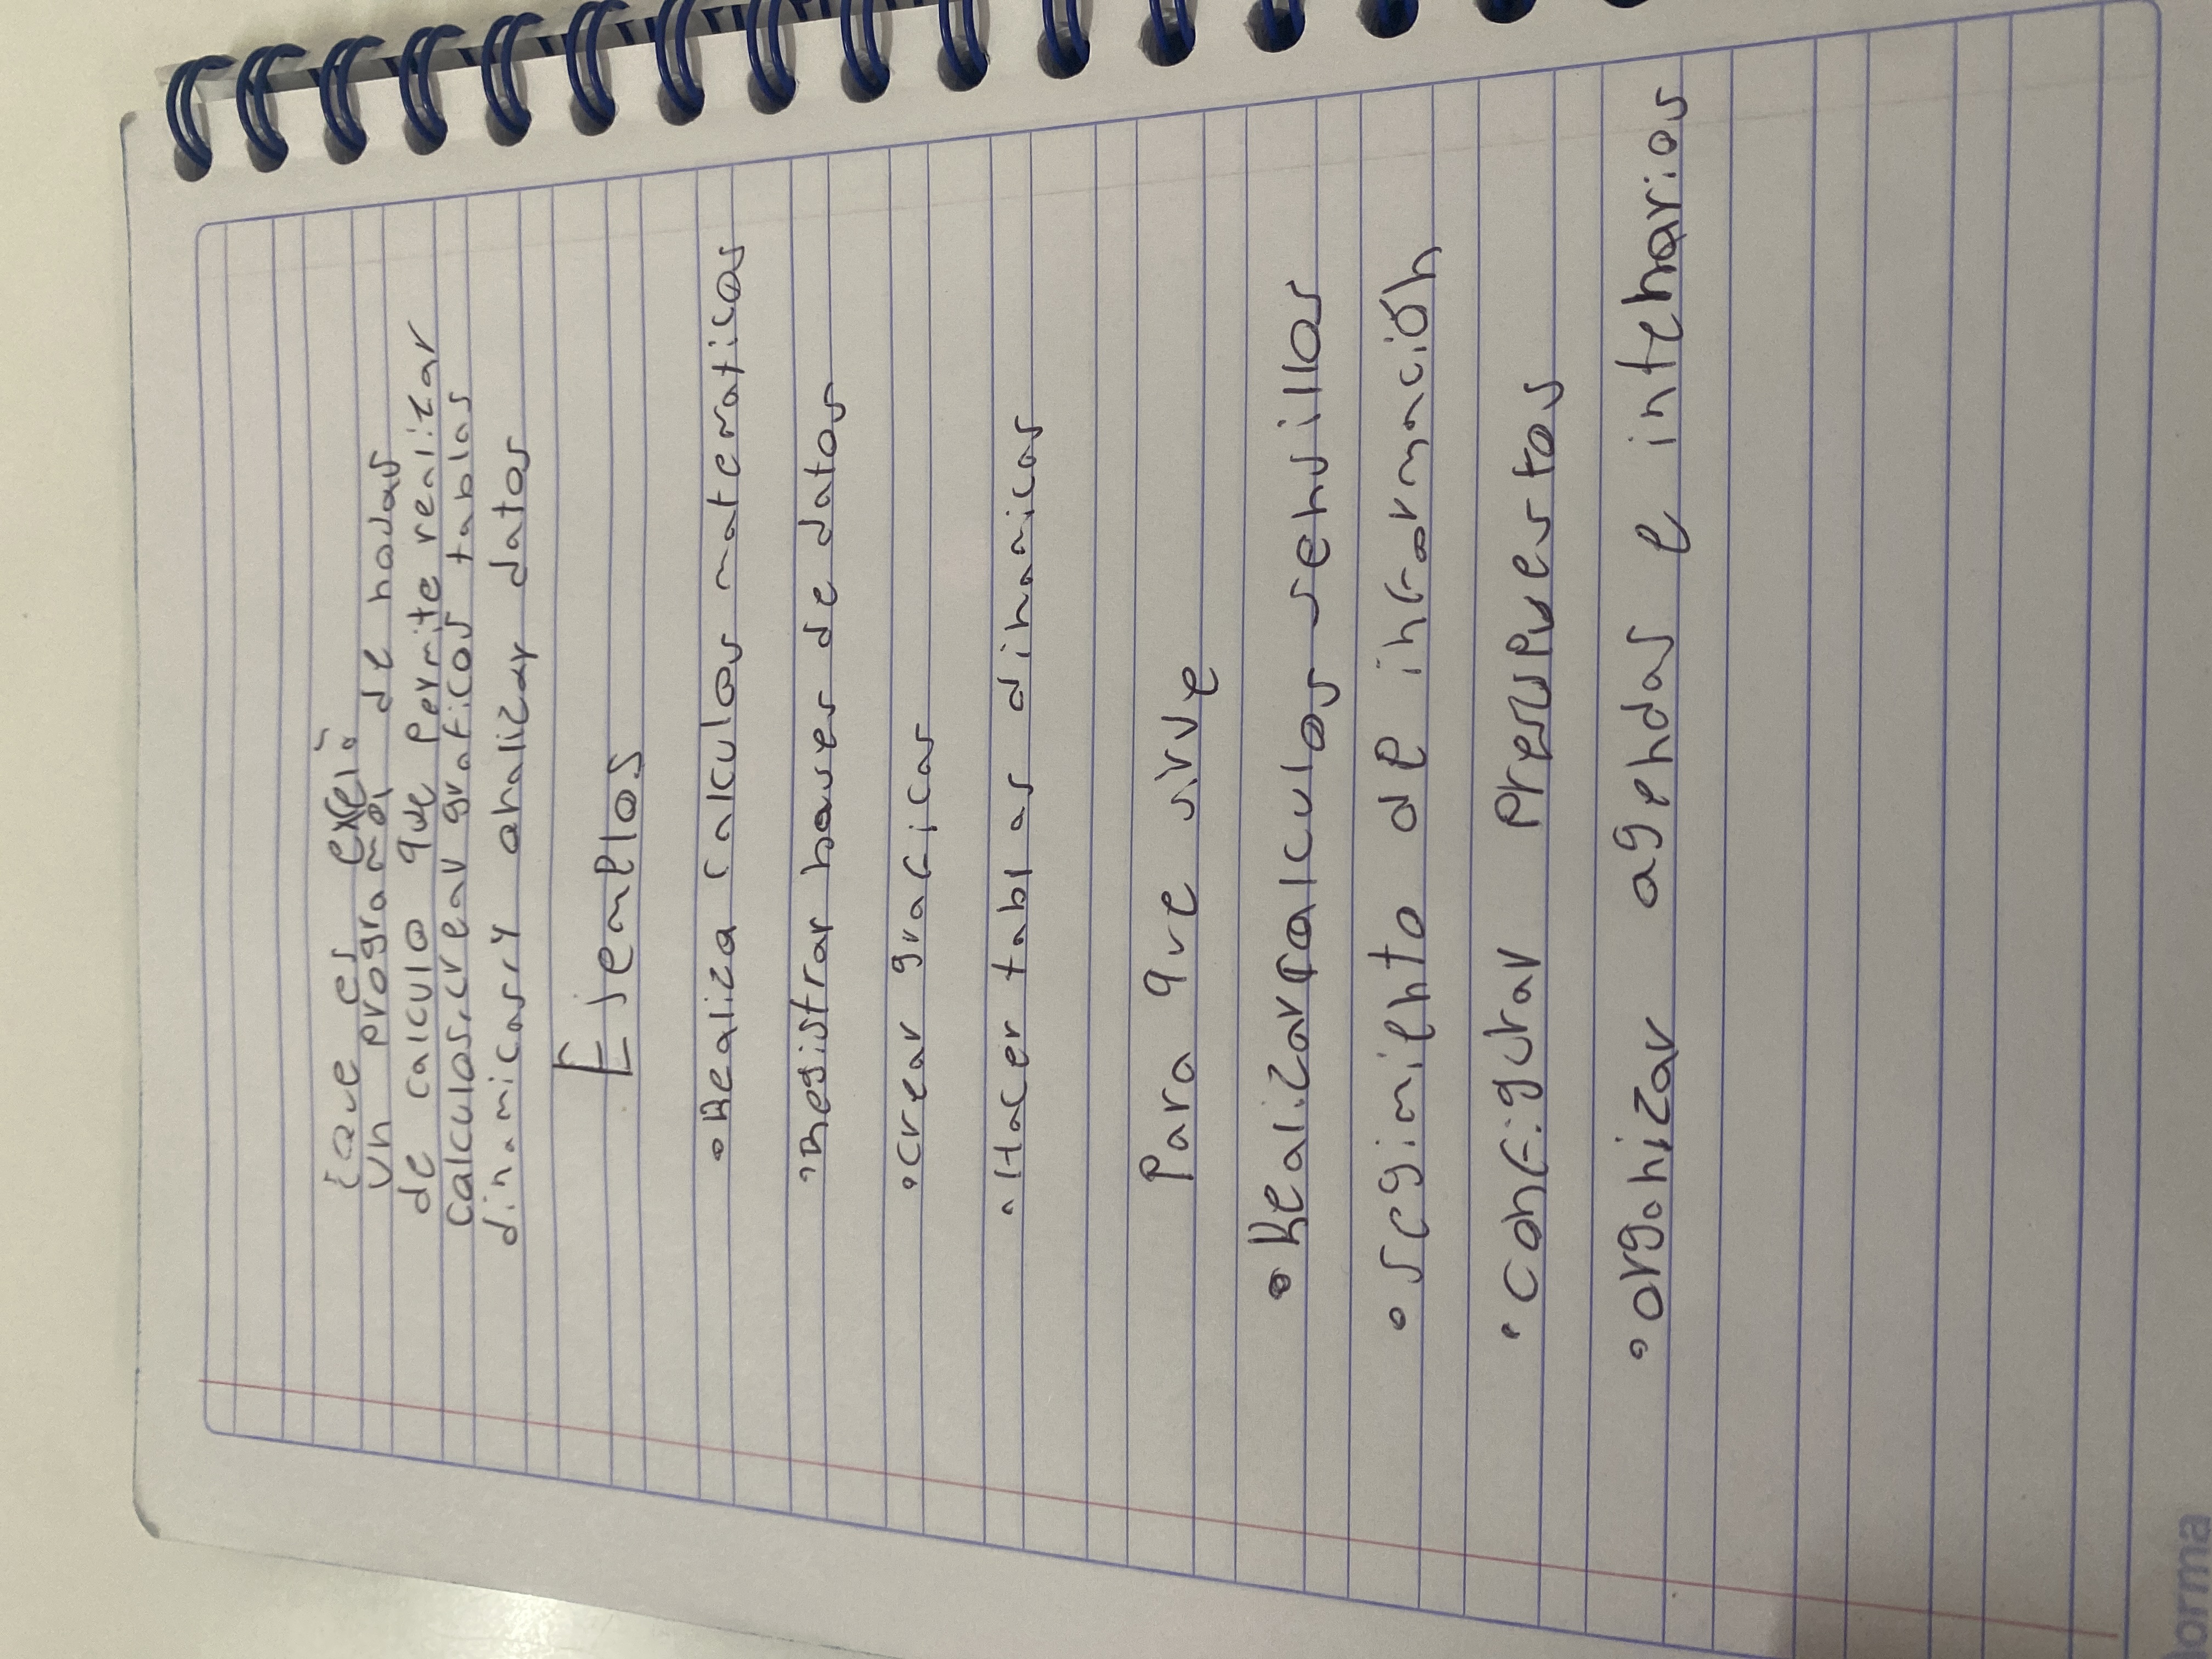 ¿que es exel?
Un programa de hodas
de calculo que permite realizar
calculos, crear graficos tablas
dinamicas, y analizar datos
Ejemplos
• Realiza calculos matematicos
• Registrar bases de datos
• crear graficas
• Hacer tablas dinamicas
Para que sirve
• Realizar calculos sensillos
• segimiento de información
• configurar presupuestos
• organizar agendas e intenarios